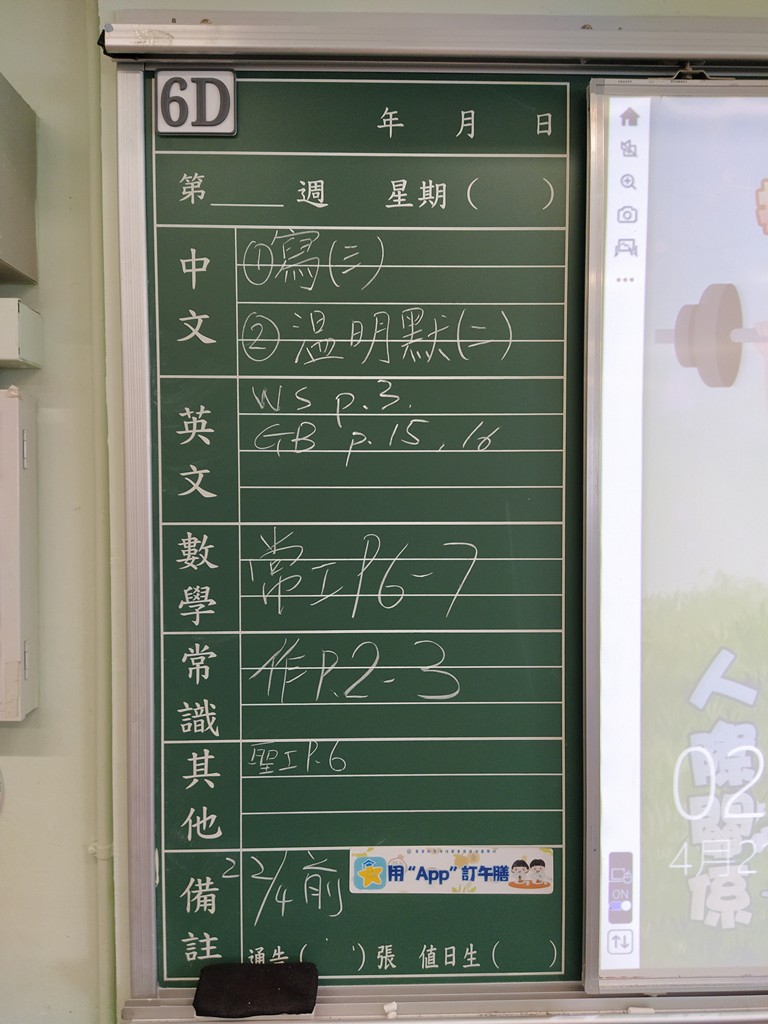 6D
年 月 日
第____週 星期( )
中文
①寫(三)
②溫明默(二)
英文
WS p.3.
GB p.15, 16
數學
常工P6-7
常識
作P.2-3
其他
聖工P.6
備註
22/4前
用“App”訂午膳
通告( )張 值日生( )
人際關係
02
4月2
ON